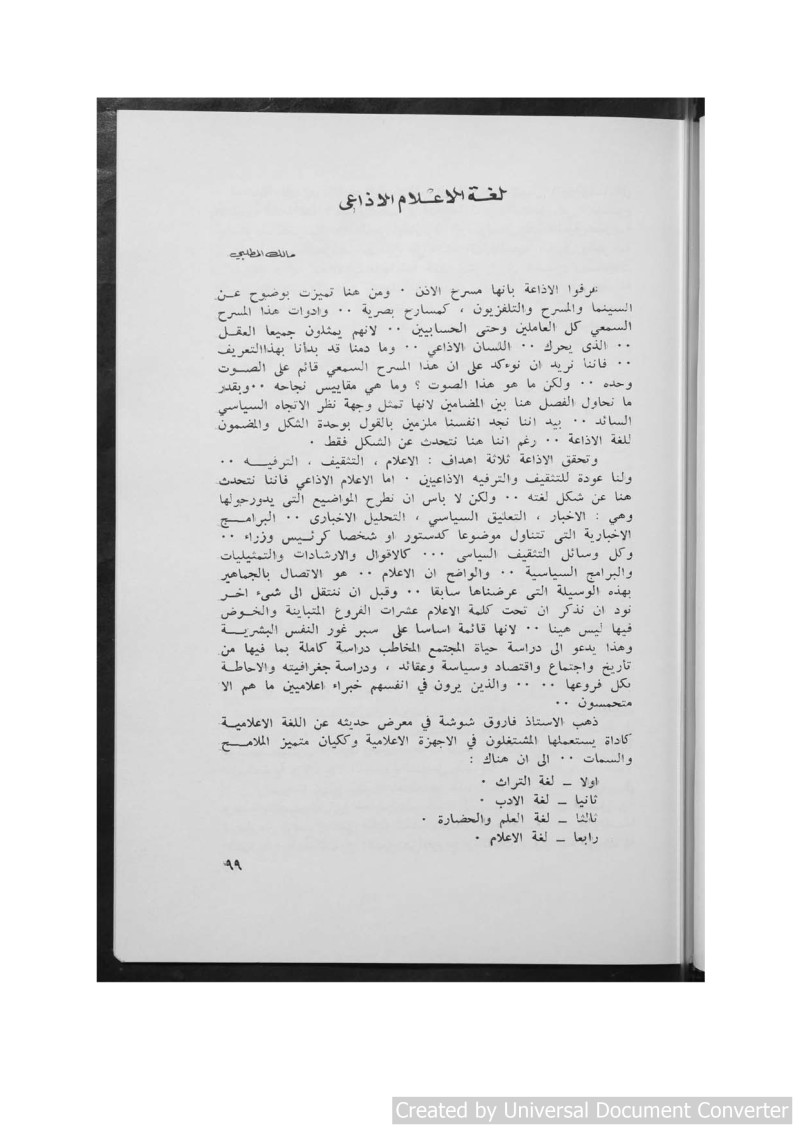 لغة الاعلام الاذاعي
مالك المطلبي
عرفوا الاذاعة بانها مسرح الاذن ٠ ومن هنا تميزت بوضوح عـــن
السينما والمسرح والتلفزيون ، كمسارح بصرية ٠٠ وادوات هذا المسرح
السمعي كل العاملين وحتى الحسابيين ٠٠ لانهم يمثلون جميعا العقـــل
٠٠ الذى يحرك ٠٠ اللسان الاذاعي ٠٠ وما دمنا قد بدأنا بهذا التعريف
٠٠ فاننا نريد ان نوءكد على ان هذا المسرح السمعي قائم على الصـــوت
وحده ٠٠ ولكن ما هو هذا الصوت ؟ وما هي مقاييس نجاحه ٠٠ وبقدر
ما نحاول الفصل هنا بين المضامين لانها تمثل وجهة نظر الاتجاه السياسي
السائد ٠٠ بيد اننا نجد انفسنا ملزمين بالقول بوحدة الشكل والمضمون
للغة الاذاعة ٠٠ رغم اننا هنا نتحدث عن الشكل فقط ٠
وتحقق الاذاعة ثلاثة اهداف : الاعلام ، التثقيف ، الترفيـــه ٠٠
ولنا عودة للتثقيف والترفيه الاذاعيين ٠ اما الاعلام الاذاعي فاننا نتحدث
هنا عن شكل لغته ٠٠ ولكن لا باس ان نطرح المواضيع التى يدورحولها
وهي : الاخبار ، التعليق السياسي ، التحليل الاخبارى ٠٠ البرامـــج
الاخبارية التى تتناول موضوعا كدستور او شخصا كرئـــيس وزراء ٠٠
وكل وسائل التثقيف السياسى ٠٠٠ كالاقوال والارشادات والتمثيليات
والبرامج السياسية ٠٠ والواضح ان الاعلام ٠٠ هو الاتصال بالجماهير
بهذه الوسيلة التى عرضناها سابقا ٠٠ وقبل ان ننتقل الى شىء اخـــر
نود ان نذكر ان تحت كلمة الاعلام عشرات الفروع المتباينة والخـــوض
فيها ليس هينا ٠٠ لانها قائمة اساسا على سبر غور النفس البشريـــة
وهذا يدعو الى دراسة حياة المجتمع المخاطب دراسة كاملة بما فيها من
تأريخ واجتماع واقتصاد وسياسة وعقائد ، ودراسة جغرافيته والاحاطـــة
بكل فروعها ٠٠ ٠٠ والذين يرون في انفسهم خبراء اعلاميين ما هم الا
متحمسون ٠٠
ذهب الاستاذ فاروق شوشة في معرض حديثه عن اللغة الاعلاميـــة
كاداة يستعملها المشتغلون في الاجهزة الاعلامية وككيان متميز الملامـــح
والسمات ٠٠ الى ان هناك :
اولا ـ لغة التراث ٠
ثانيا ـ لغة الادب ٠
ثالثا ـ لغة العلم والحضارة ٠
رابعا ـ لغة الاعلام ٠
٩٩
Created by Universal Document Converter